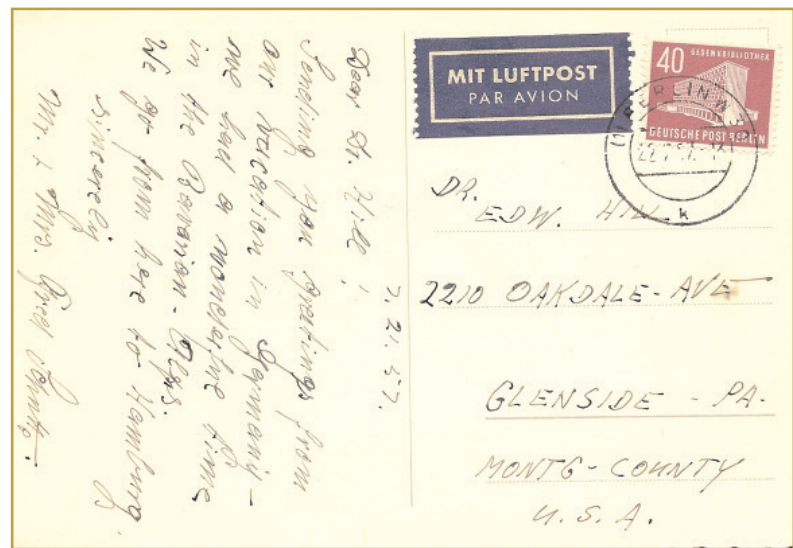 7. 21. 57.
Dear Dr. Hill!
Sending you greetings from
our vacation in Germany-
we had a wonderful time
in the Bavarian-Alps.
We go from here to Hamburg.
Sincerely
Mr. & Mrs. Fred
MIT LUFTPOST
PAR AVION
40
GEDENKBIBLIOTHEK
DEUTSCHE POST BERLIN
(1) BERLIN W
22.7.57.
k
DR.
EDW. HILL
2210 OAKDALE-AVE
GLENSIDE - PA.
MONTG-COUNTY
U. S. A.